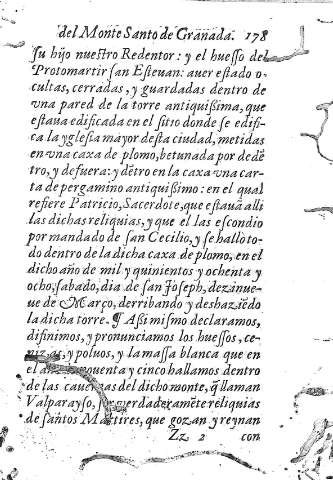 del Monte Santo de Granada. 178
ſu hijo nueſtro Redentor: y el hueſſo del
Protomartir ſan Eſteuan: auer eſtado o-
cultas, cerradas, y guardadas dentro de
vna pared de la torre antiquiſsima, que
eſtaua edificada en el ſitio donde ſe edifi-
ca la ygleſia mayor deſta ciudad, metidas
en vna caxa de plomo, betunada por dedē
tro, y defuera: y dētro en la caxa vna car-
ta de pergamino antiquiſsimo: en el qual
refiere Patricio, Sacerdote, que eſtauā alli
las dichas reliquias, y que el las eſcondio
por mandado de ſan Cecilio, y ſe hallo to-
do dentro de la dicha caxa de plomo, en el
dicho año de mil y quinientos y ochenta y
ocho, ſabado, dia de ſan Joſeph, dezinue-
ue de Março, derribando y deshaziēdo
la dicha torre. ¶ Aſsi miſmo declaramos,
difinimos, y pronunciamos los hueſſos, ce-
nizas, y poluos, y la maſſa blanca que en
el año y cinco hallamos dentro
de las cauernas del dicho monte, q̄ llaman
Valparayſo, ſer verdaderamēte reliquias
de ſantos Martires, que gozan y reynan
Zz 2 con